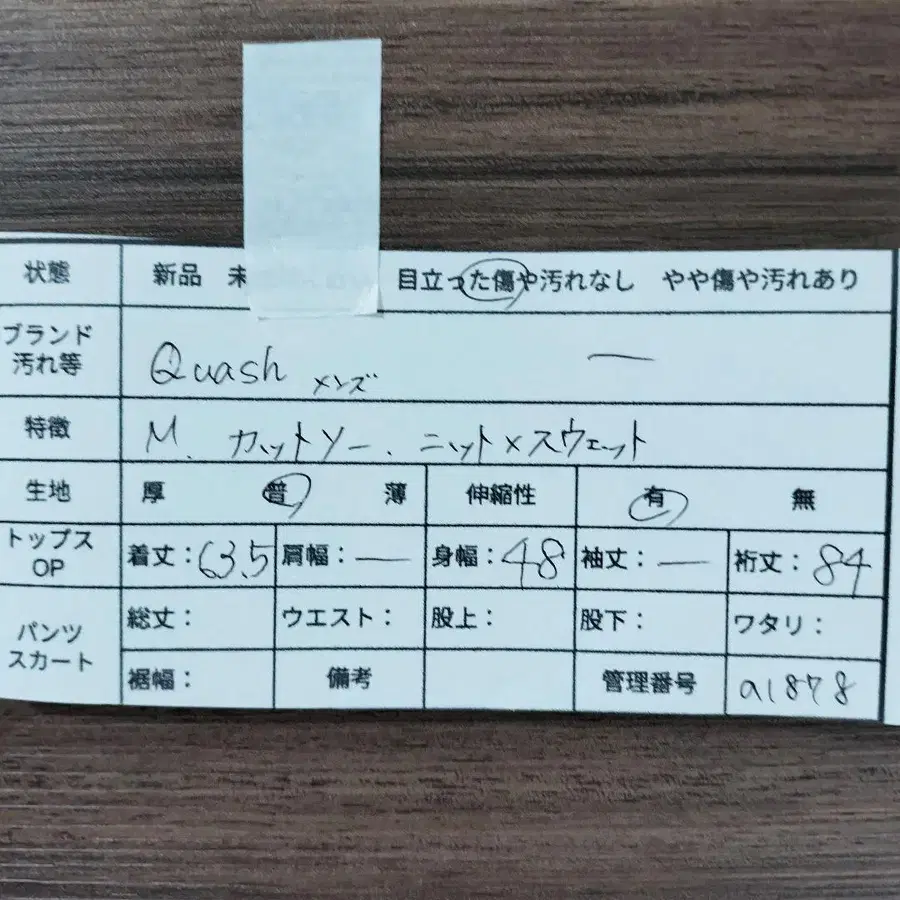 状態 新品 未 目立った傷や汚れなし やや傷や汚れあり
ブランド
汚れ等 Quash メンズ ー
特徴 M. カットソー. ニット×スウェット
生地 厚 普 薄 伸縮性 有 無
トップス
OP 着丈:63.5 肩幅:― 身幅:48 袖丈:― 裄丈:84
パンツ
スカート 総丈: ウエスト: 股上: 股下: ワタリ:
裾幅: 備考 管理番号 a1878